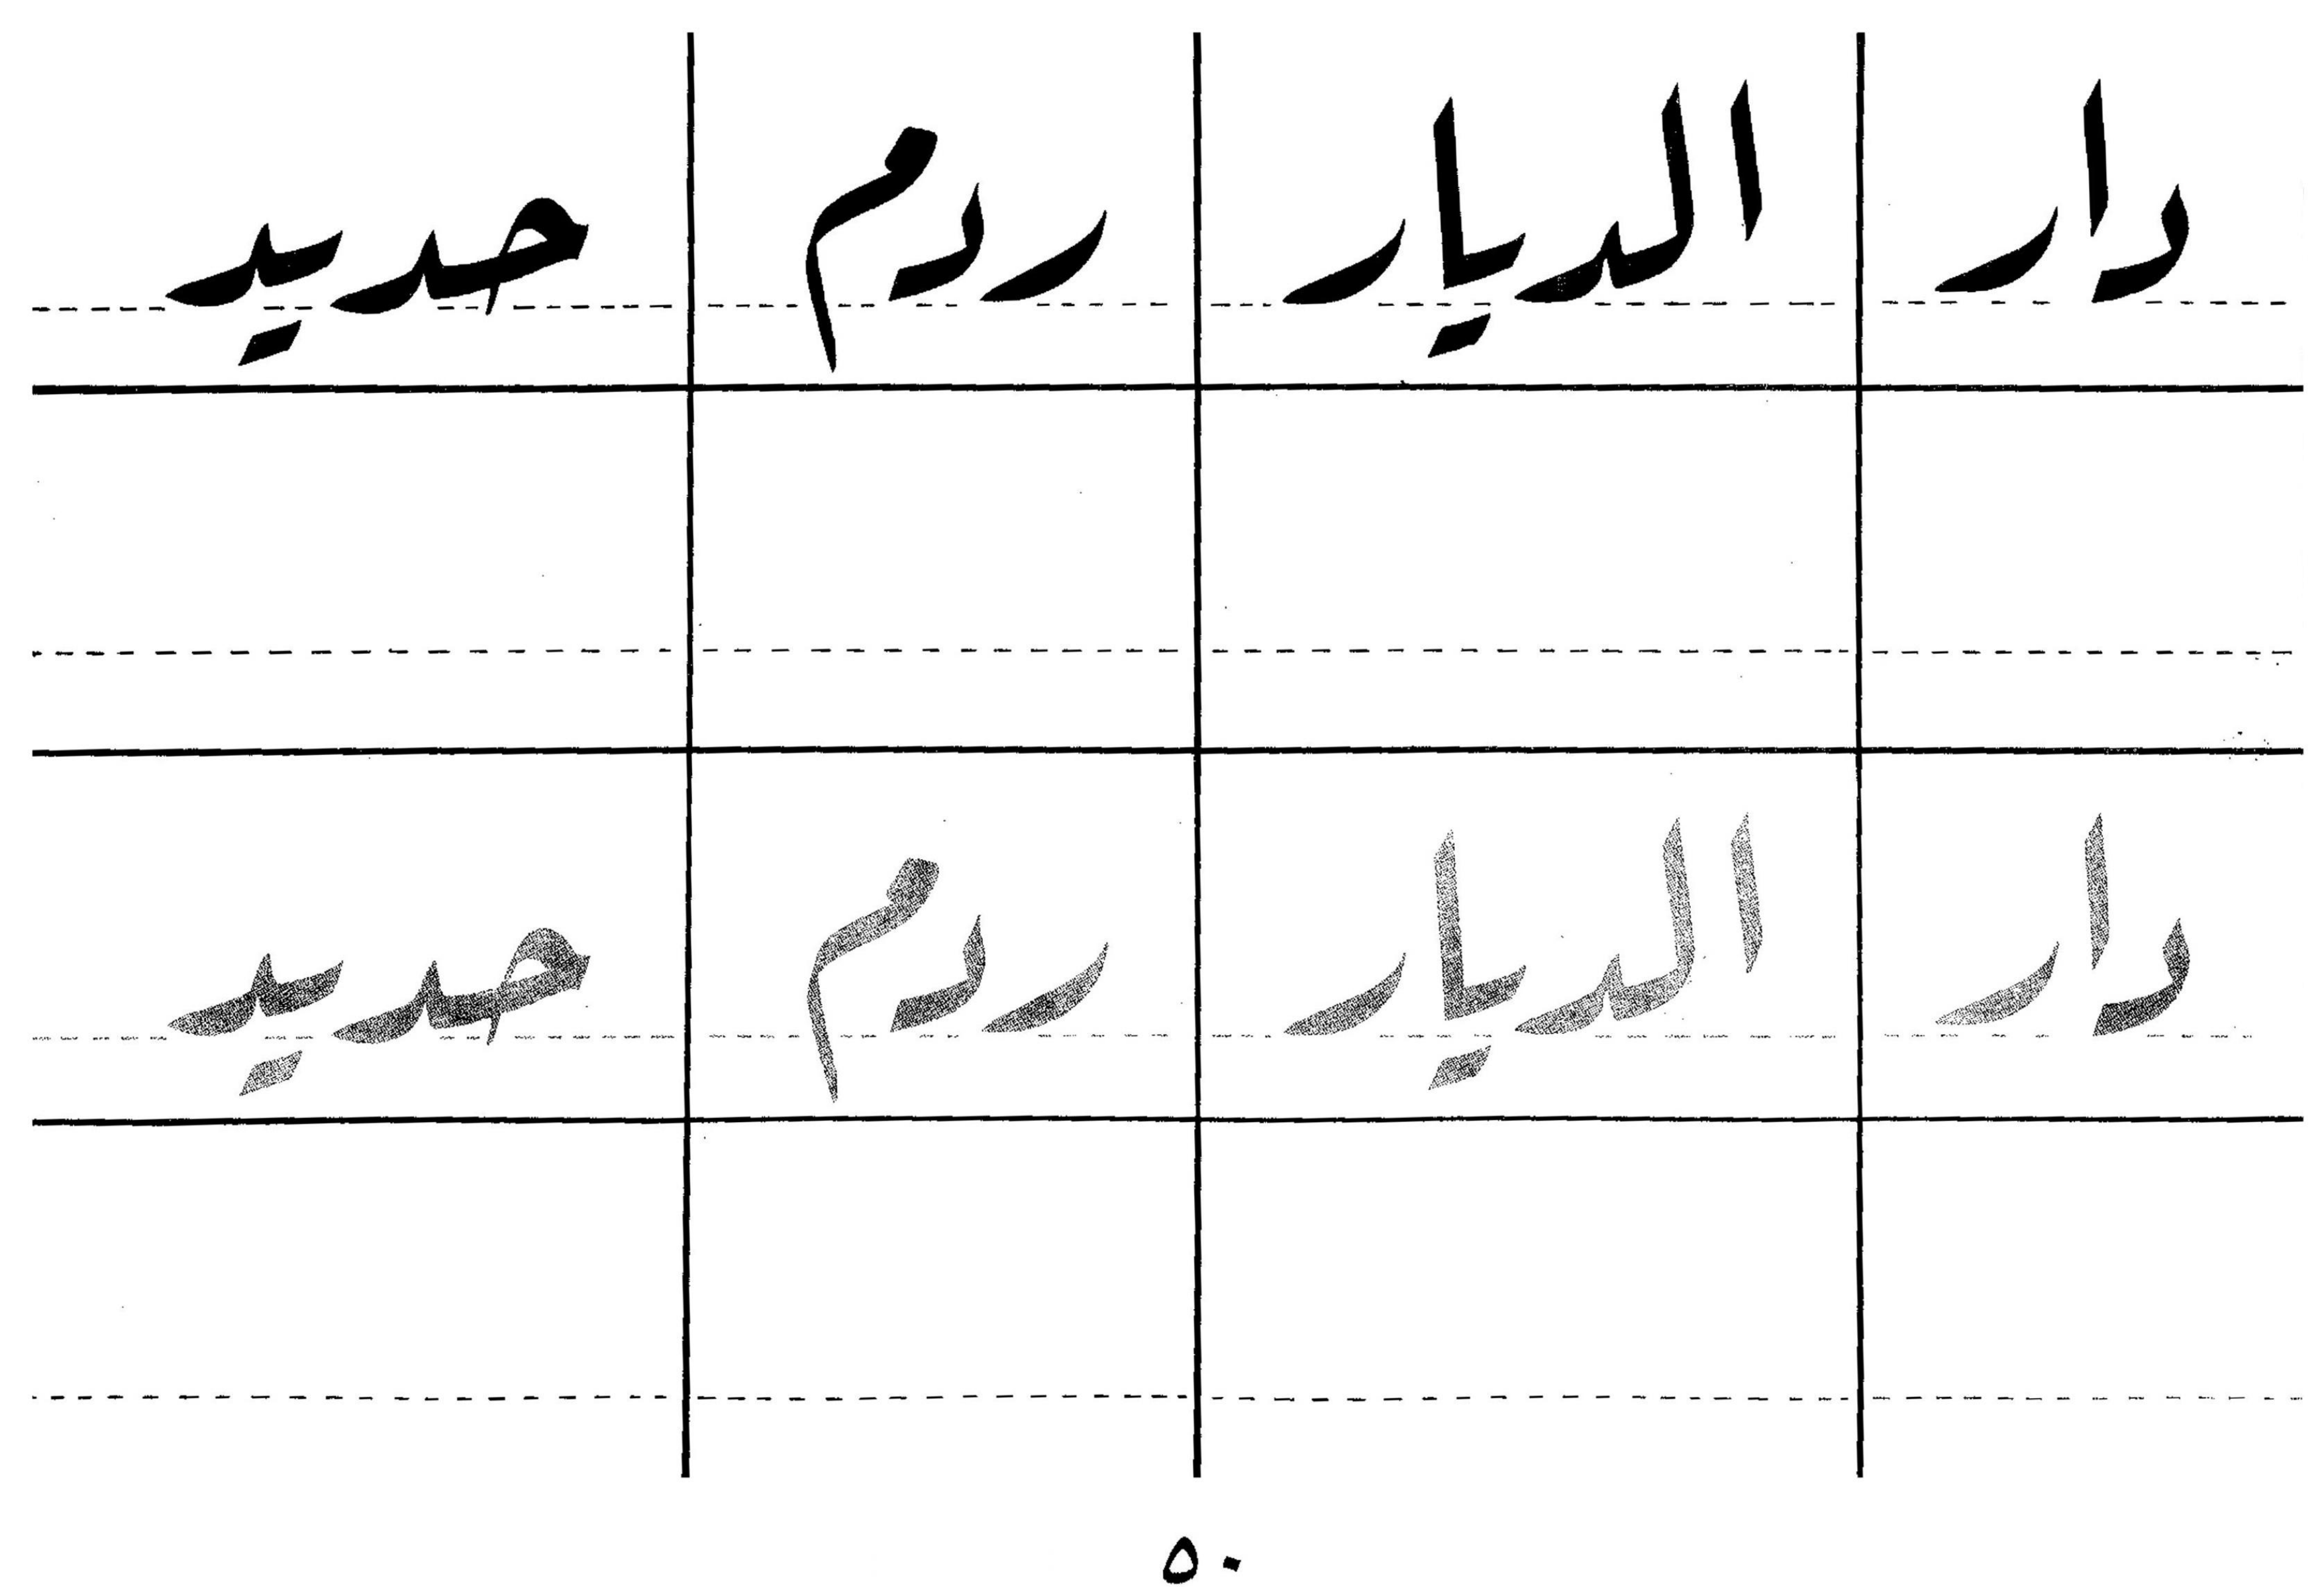 دار الديار ردم حديد
دار الديار ردم حديد
٥٠